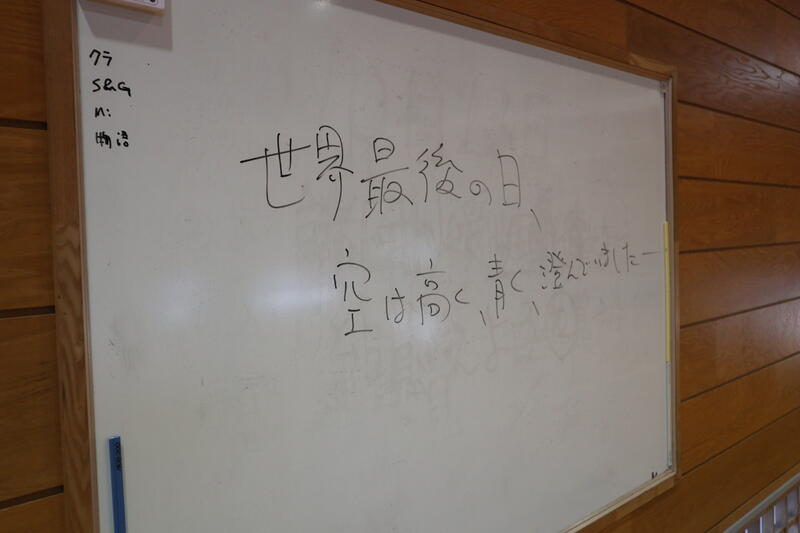 クラ
物語
世界最後の日、
空は高く、青く、澄んでいました―